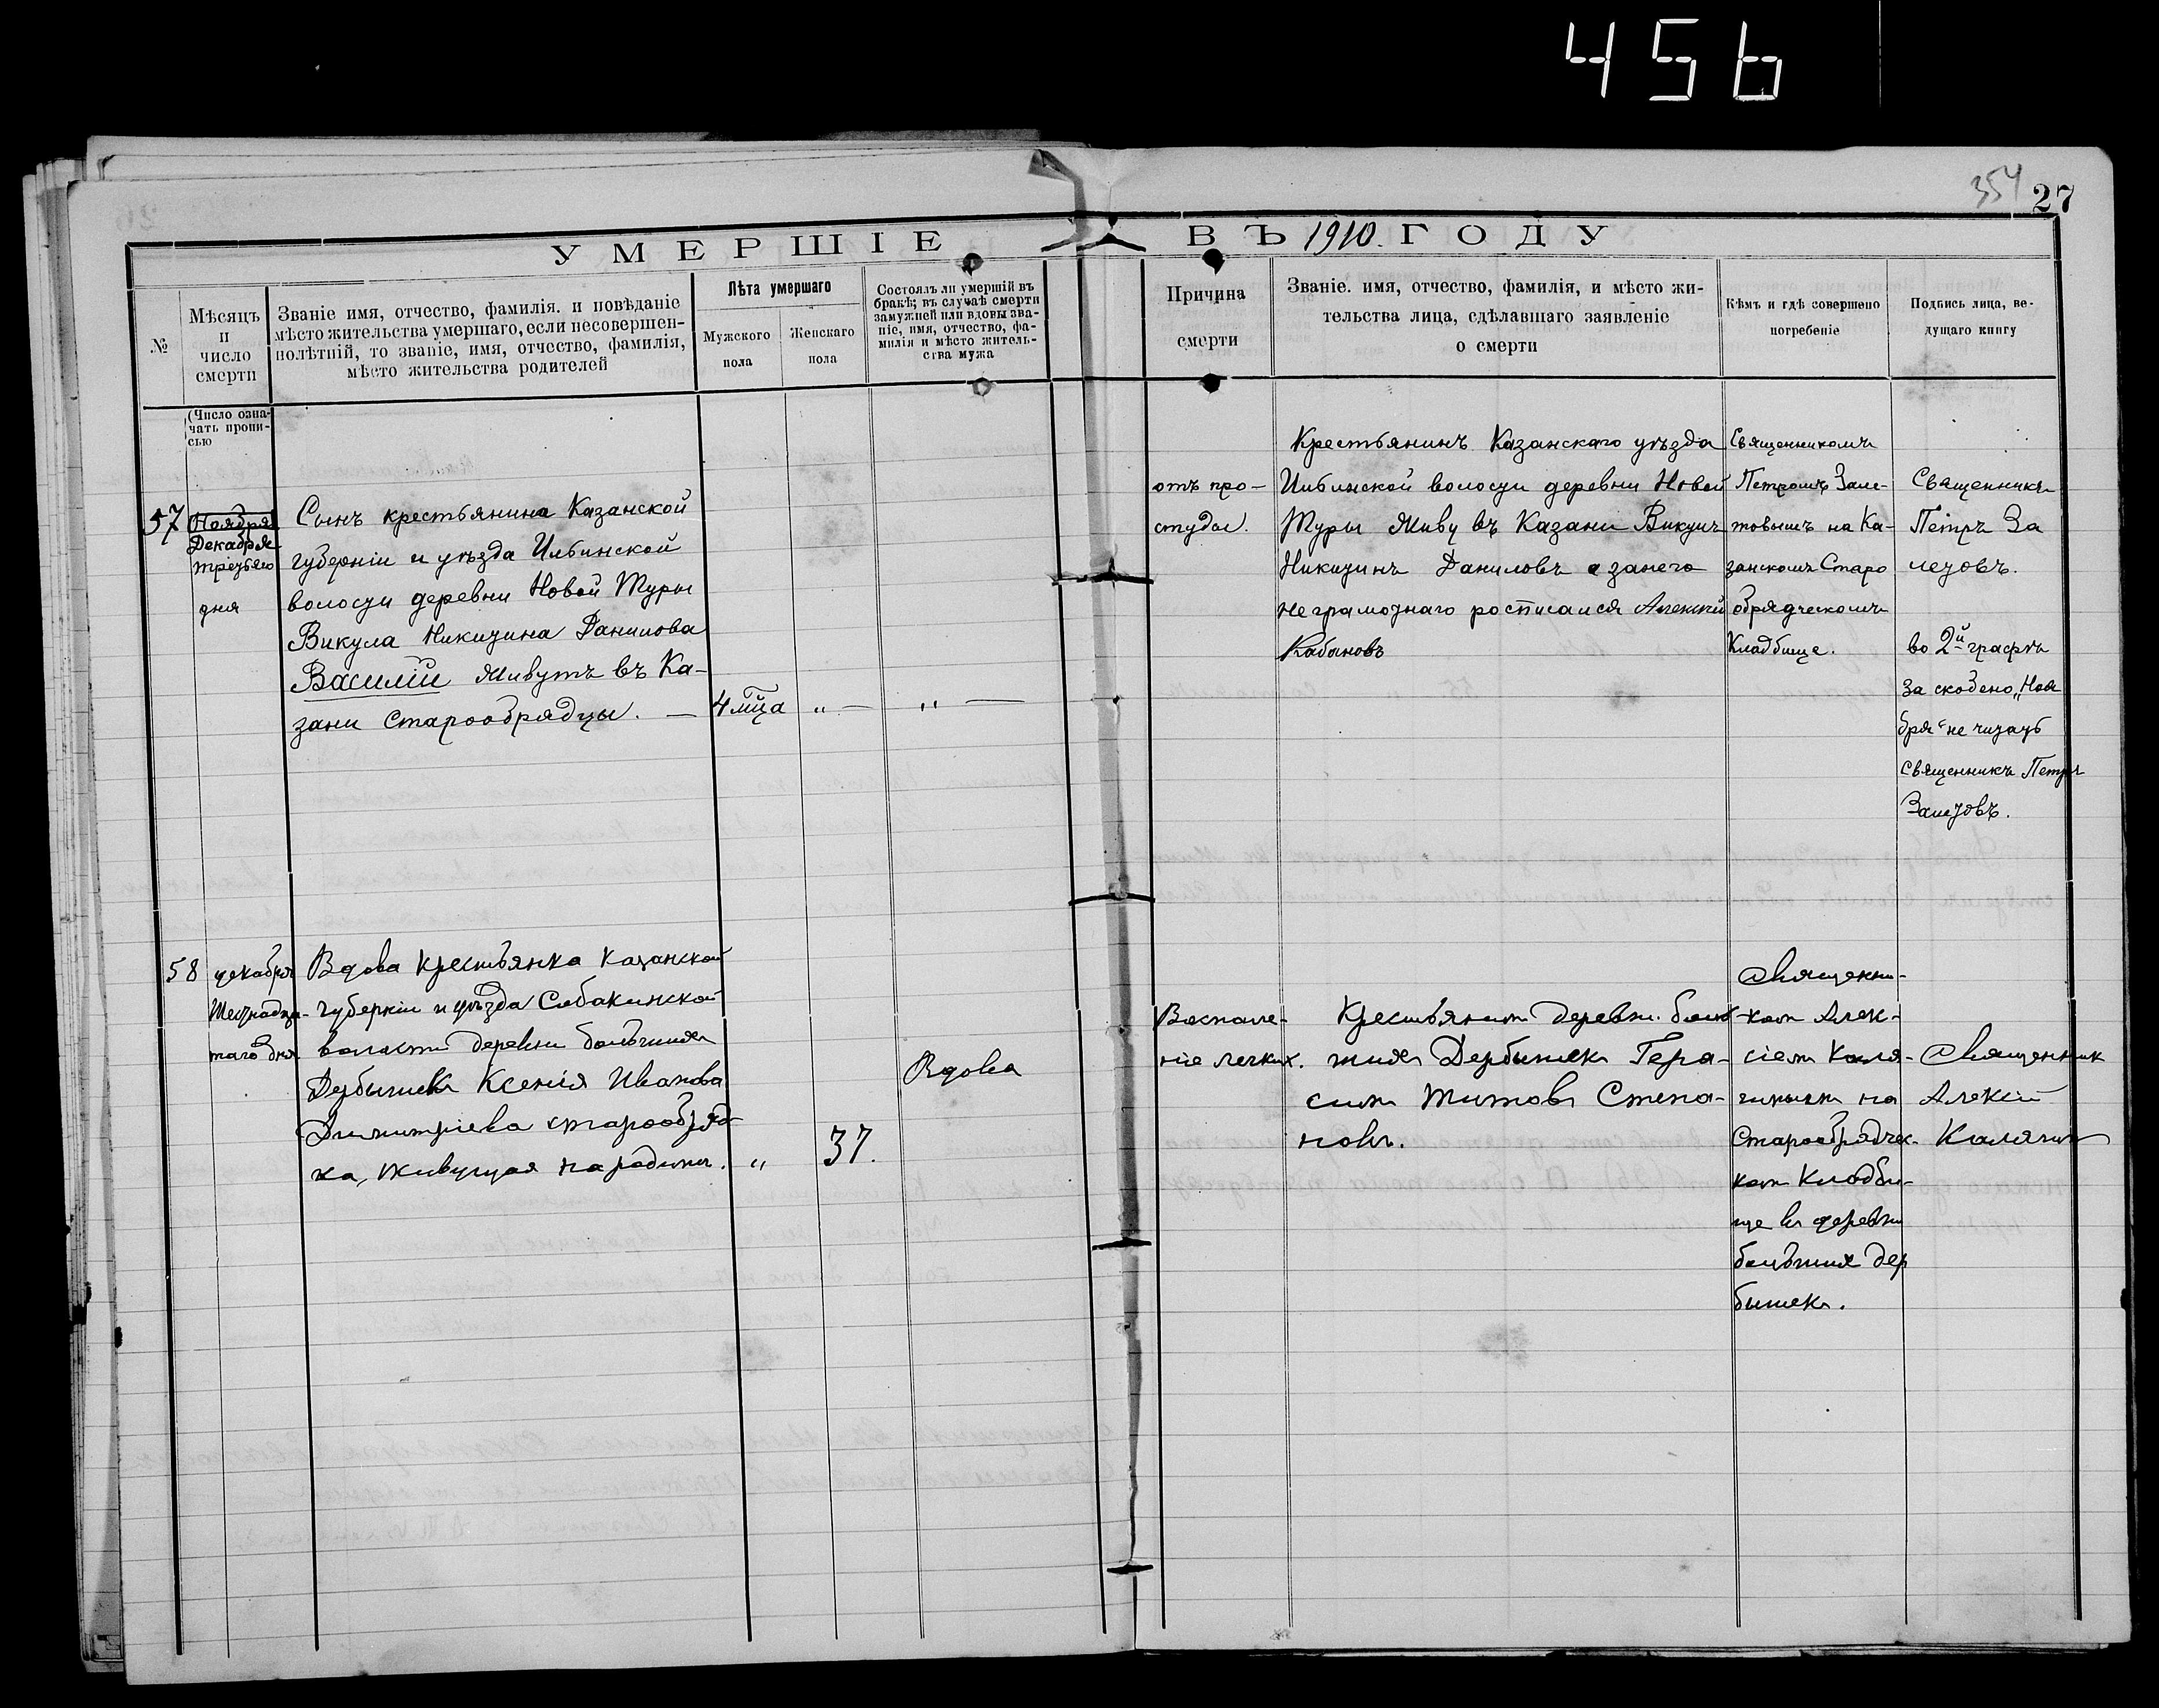 456
354 27
УМЕРШІЕ ВЪ 1910. ГОДУ
№
Мѣсяцъ
и
число
смерти
Званіе имя, отчество, фамилія. и повѣданіе
мѣсто жительства умершаго, если несовершен-
нолѣтній, то званіе, имя, отчество, фамилія,
мѣсто жительства родителей
Лѣта умершаго
Мужского
пола
Женскаго
пола
Состоялъ ли умершій въ
бракѣ; въ случаѣ смерти
замужней или вдовы зва-
ніе, имя, отчество, фа-
милія и мѣсто житель-
ства мужа
Причина
смерти
Званіе. имя, отчество, фамилія, и мѣсто жи-
тельства лица, сдѣлавшаго заявленіе
о смерти
Кѣмъ и гдѣ совершено
погребеніе
Подпись лица, ве-
дущаго книгу
(Число озна-
чать пропи-
сью
57
Ноября
Декабря
третьяго
дня
Сынъ крестьянина Казанской
губерніи и уѣзда Ильинской
волости деревни Новой Туры
Викула Никитина Данилова
Василій живутъ въ Ка-
зани Старообрядцы. —
4 мца
„ —
„ —
отъ про-
студы.
Крестьянинъ Казанскаго уѣзда
Ильинской волости деревни Новой
Туры Живу въ Казани Викулъ
Никитинъ Даниловъ а занего
неграмотнаго росписался Алексѣй
Кабановъ
Священникомъ
Петромъ Зале-
товымъ на Ка-
занскомъ Старо
обрядческомъ
Кладбище.
Священникъ
Петръ За
летовъ.
во 2й графѣ
за скоблено „Ноя
бря“ не читать
Священникъ Петръ
Залетовъ.
58
декабря
Шестнадца-
таго дня
Вдова крестьянка Казанской
губерніи и уѣзда Собакинской
волости деревни большихъ
Дербышекъ Ксенія Иванова
Димитріева старообряд-
ка, живущая народинѣ.
„
37.
Вдова
Воспале-
ніе легкихъ.
Крестьянинъ деревни. боль-
шихъ Дербышекъ Гера-
симъ Титовъ Степа-
новъ.
Священни-
комъ Алек-
сіемъ Каля-
гинымъ на
Старообрядчес-
комъ Кладби-
ще въ деревни
большихъ дер
бышекъ.
Священникъ
Алексій
Калягинъ